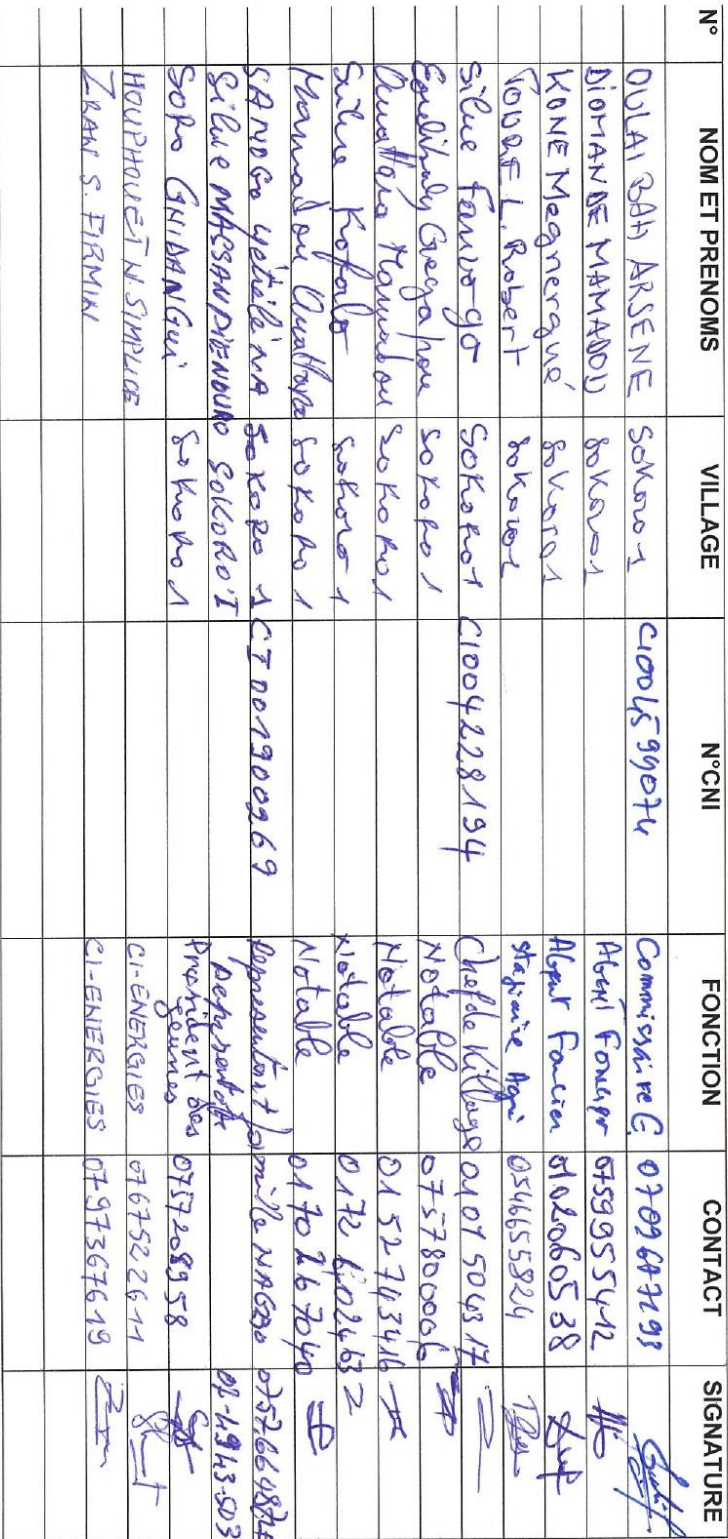 N° NOM ET PRENOMS VILLAGE N°CNI FONCTION CONTACT SIGNATURE
OULAI BAH ARSENE Sokoro 1 Commissaire E.
DIOMANDE MAMADOU Sokoro 1 Agent Foncier 0759955412
KONE Megnergué Sokoro 1 Agent Foncier 0102060538
TOURE L. Robert Sokoro 1 Stagiaire Agri 0546655824
Silue Fanvogo SOKORO 1 CI004228194 Chef de Village 0101504317
Gregahou SOKORO 1 Notable 0757800006
Ouattara Mamadou SOKORO 1 Notable 0152743416
Silue Kofalo Sokoro 1 Notable 0172602463
Mamadou Ouattara SOKORO 1 Notable 0170267040
SANOGO SOKORO 1 CI001900269 Representant famille 0757664874
Silue MASSANDIENOURO SOKORO I
SORO GNIDANGUI SOKORO 1 President des jeunes 0757208958
HOUPHOUET N. SIMPLICE CI-ENERGIES 0767522611
ZRAN S. FIRMIN CI-ENERGIES 0797367619